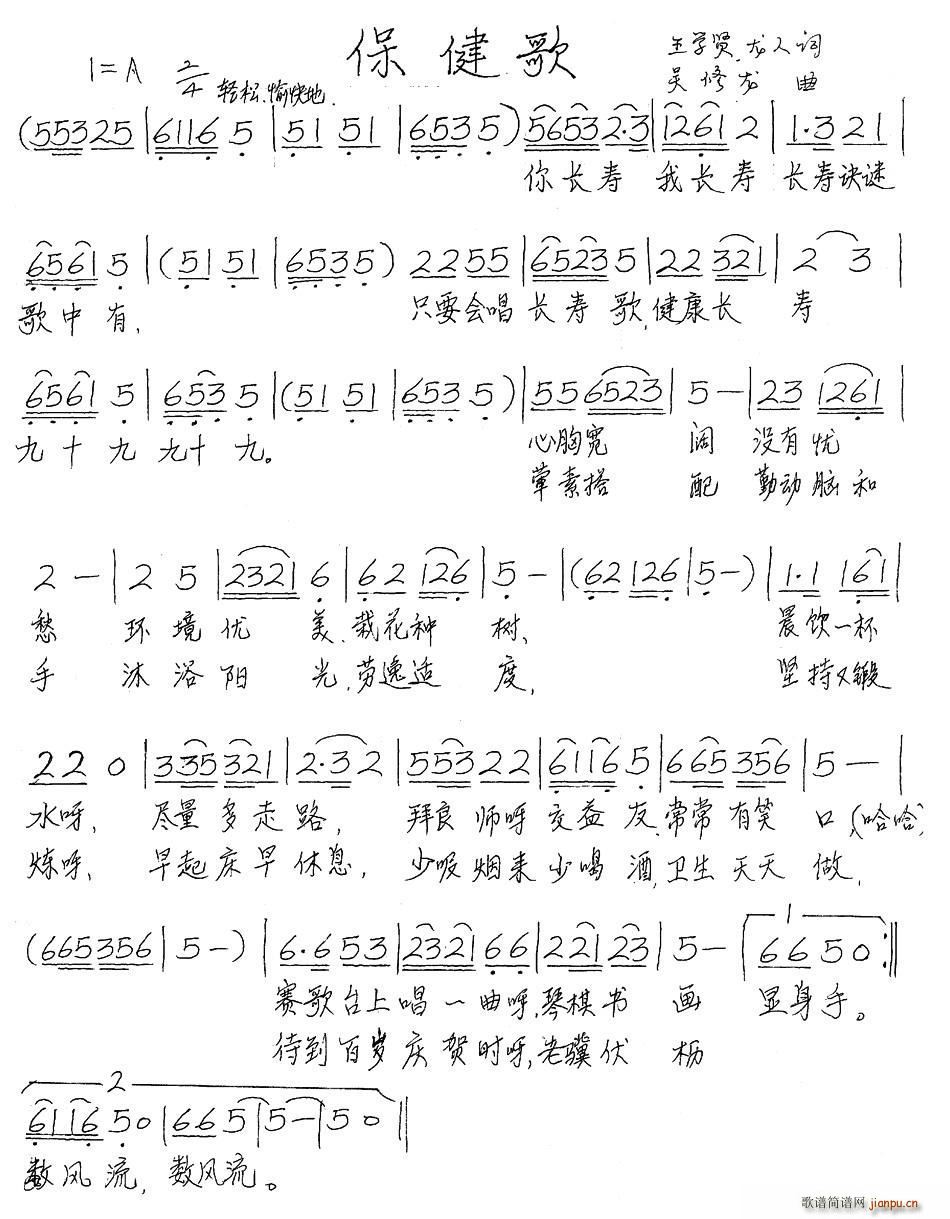 保健歌
1=A 2/4 轻松、愉快地
王学贤、龙人词
吴修龙 曲
(553225|61165|5151|6535)56532·3|12612|1·321|
你长寿 我长寿 长寿诀谜
65615|(5151|6535)2255|65235|22321|2 3
歌中有, 只要会唱长寿歌,健康长寿
65615|6535|(5151|6535)|556523|5-|231261|
九十九 九十九。 心胸宽 阔 没有忧
荤素搭 配 勤动脑和
2-|25|23216|62126|5-|(62126|5-)|1·1161|
愁 环境优 美、栽花种 树、 晨饮一杯
手 沐浴阳 光,劳逸适 度, 坚持又锻
220|335321|2·32|55322|61165|665356|5—|
水呀, 尽量多走路, 拜良师呀交益友,常常有笑口(哈哈)
炼呀、 早起床早休息, 少吸烟来少喝酒,卫生天天做,
(665356|5-)|6·653|23·2166|22123|5-|1 6650:||
赛歌台上唱一曲呀,琴棋书 画 显身手。
待到百岁庆贺时呀,老骥伏 枥
2
611650|665|5-|50||
数风流, 数风流。
歌谱简谱网 jianpu.cn